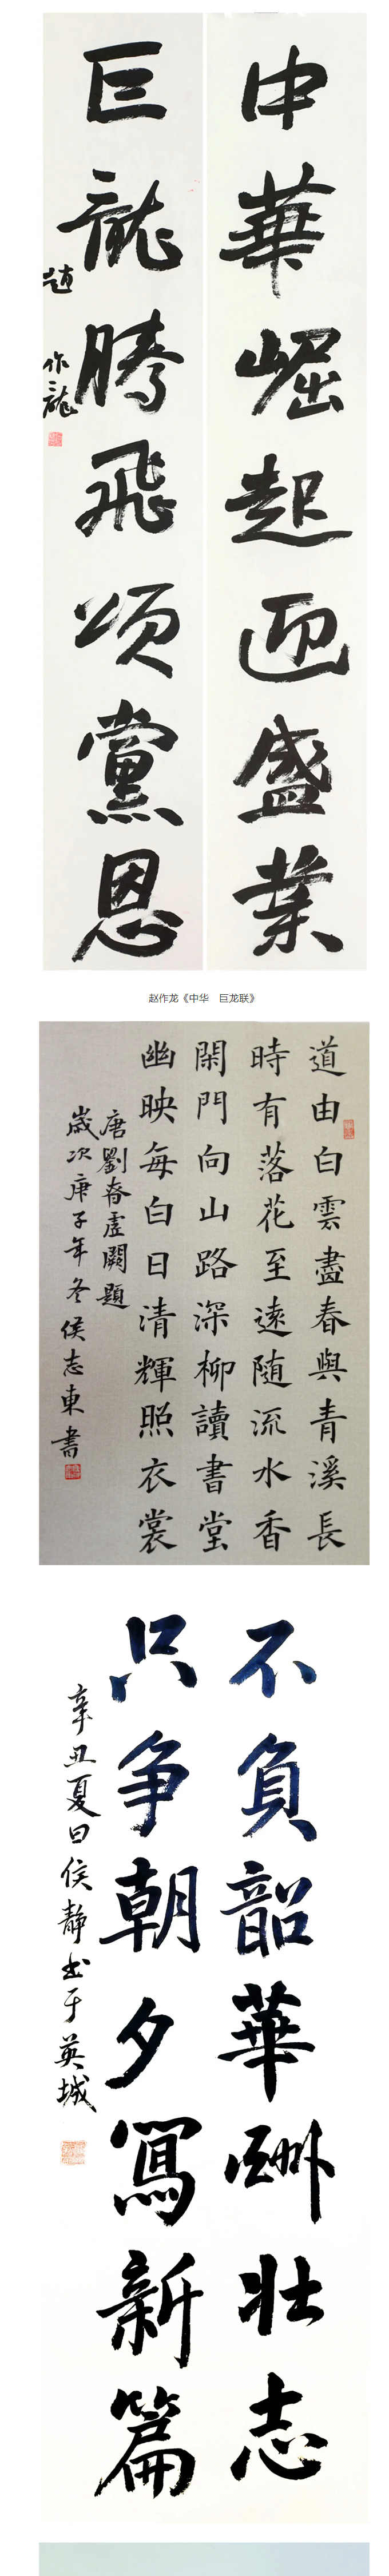 中華崛起迎盛業
巨龍騰飛頌黨恩
趙作龍
赵作龙《中华　巨龙联》
道由白雲盡春與青溪長
時有落花至遠隨流水香
閑門向山路深柳讀書堂
幽映每白日清輝照衣裳
唐劉眘虛闕題
歲次庚子年冬侯志東書
不負韶華酬壯志
只争朝夕寫新篇
辛丑夏日侯靜书于英城